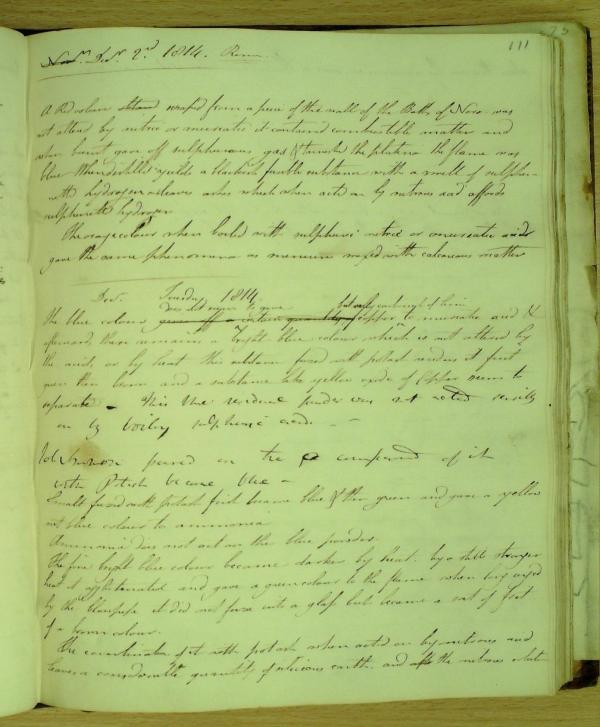 111
Decr. 2nd 1814. Rome
A Red colour scraped from a piece of the wall of the Baths of Nero was
not altered by nitric or muriatic it contained combustible matter and
when burnt gave off sulphureous gas & tarnished the platina the flame was
blue When distilled yields a blackish fusible substance with a smell of sulphu-
retted hydrogen & leaves ashes which when acted on by nitrous acid affords
sulphuretted hydrogen
The orange colour when boiled with sulphuric nitric or muriatic acids
gave the same phenomena as minium mixed with calcareous matter
Decr. Tuesday 1814
does not appear to give but only carbonate of lime
The blue colour gave off a certain quantity of copper to muriatic acid &
afterwards there remains a bright blue colour which is not altered by
the acids, or by heat this substance fused with potash renders it first
green then brown and a substance like yellow oxide of Copper seems to
separate - This blue residual powder was not acted sensibly
on by boiling sulphuric acid -
Ammonia poured on the compound of it
with Potash became blue -
Smalt fused with potash first became blue & then green and gave a yellow
not blue colour to ammonia
Ammonia does not act on the blue powder.
The fine bright blue colour became darker by heat. by a still stronger
heat it agglutinated and gave a green colour to the flame when long urged
by the blowpipe it did not fuse into a glass but became a sort of frit
of a brown colour.
The combination of it with potash when acted on by nitrous acid
leaves a considerable quantity of siliceous earth and the nitrous solution